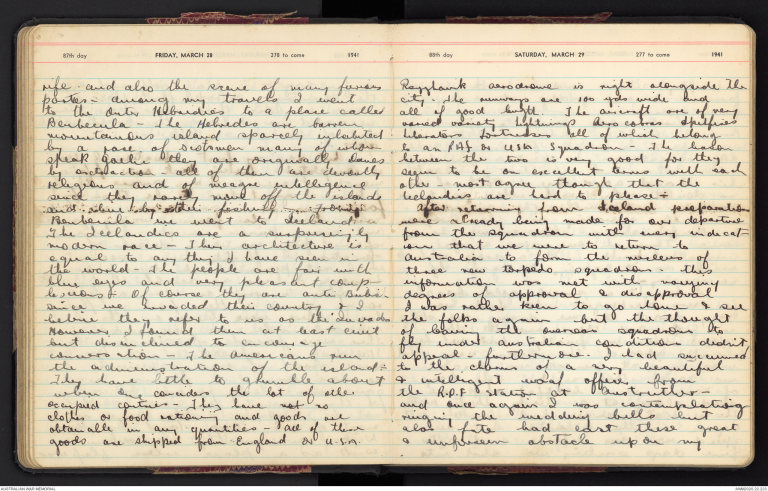 87th day FRIDAY, MARCH 28 278 to come 1941
rife and also the scene of many furious
parties - among my travels I went
to the Outer Hebridies to a place called
Benbecula - The Hebredes are barren
mountainous island sparcly inhabited
by a race of Scotsmen many of whom
speak gaelic they are originally Danes
by extraction - all of them are devoutly
religious and of meagre intelligence
since they never move off the islands
and live by fishing - from
Benbecula we went to Iceland
The Icelandics are a surpreseingly
modern race - Their architecture is
equal to any thing I have seen in
the world - the people are fair with
blue eyes and very pleasant comp-
lesions. Of course they are anti British
since we invaded their country & I
believe they refer to us as the Invaders
However I found them at least civil
but disinclined to encourage
conversation - The Americans run
the administration of the island -
They have little to grumble about
when one considers the lot of other
occupied countries - They have no
clothes or food rations and goods are
obtainable in any quantities - all of these
goods are shipped from England or U.S.A.
88th day SATURDAY, MARCH 29 277 to come 1941
aerodrome is right alongside the
city - the runways are 100 yds wide and
all of good bitt. The aircraft are of very
varied variety Lightnings Aero cobras Spitfires
Liberators Fortresses all of which belong
to an RAF or USA Squadron - The liason
between the two is very good for they
seem to be on excellent terms with each
other - most agree though that the
Icelandics are hard to please -
After returning from Iceland preparations
were already being made for our departure
from the squadron with every indicat-
ion that we were to return to
Australia to form the nucleus of
three new torpedo squadrons - this
information was met with varying
degrees of approval & disapproval
I was rather keen to go there & see
the folks again - but the thought
of leaving the overseas squadrons to
fly under Australian conditions didn't
appeal - furthermore I had succumed
to the charms of a very beautiful
& intelligent waaf officer from
the R.D.F station at
and once again I was contemplating
ringing the wedding bells but
alas fate had cast these great
& unforseen obstacle upon my
AUSTRALIAN WAR MEMORIAL